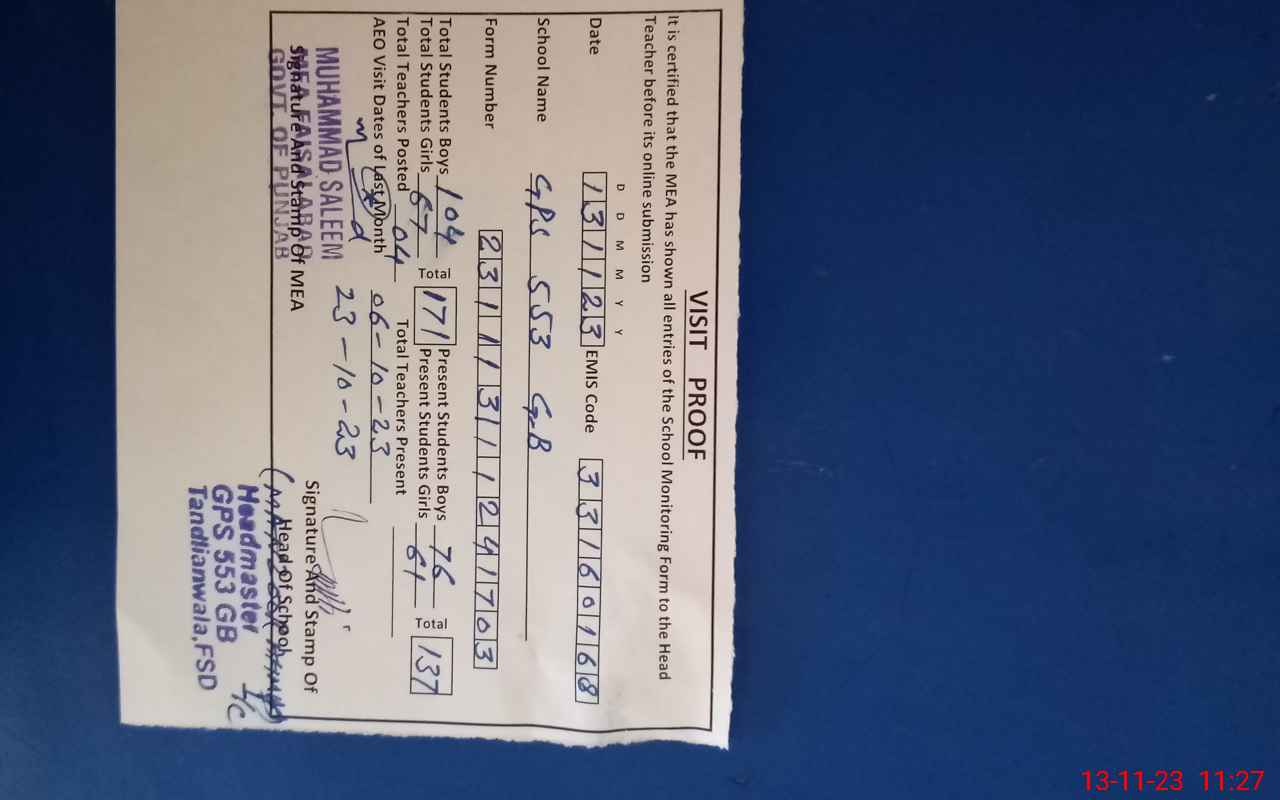 VISIT PROOF
It is certified that the MEA has shown all entries of the School Monitoring Form to the Head
Teacher before its online submission
D D M M Y Y
Date 131123 EMIS Code 33160168
School Name GPS 553 GB
Form Number 23111311241703
Total Students Boys 104 Total 171 Present Students Boys 76 Total 137
Total Students Girls 67 Present Students Girls 61
Total Teachers Posted 04 Total Teachers Present
AEO Visit Dates of Last Month 06-10-23
23-10-23
MUHAMMAD SALEEM
MEA FAISALABAD
GOVT. OF PUNJAB
Signature And Stamp Of MEA
Signature And Stamp Of
Head Of School
Headmaster I/C
GPS 553 GB
Tandlianwala, FSD
13-11-23 11:27